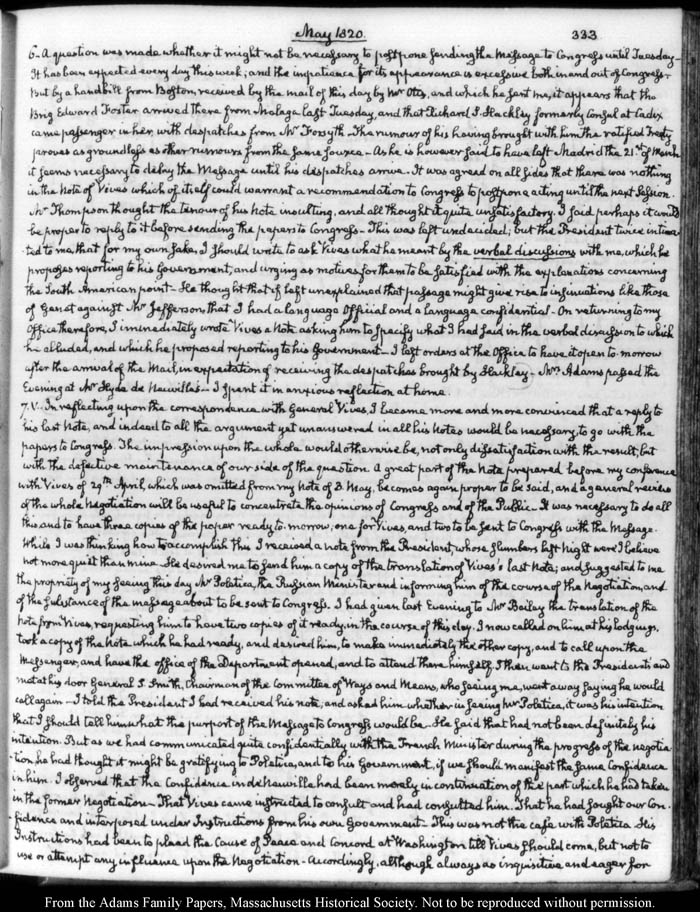 May 1820.
333
6. A question was made whether it might not be necessary to postpone sending the Message to Congress until Tuesday.
It has been expected every day this week; and the impatience for its appearance is excessive both in and out of Congress.
But by a handbill from Boston, received by the mail of this day by Mr Otis, and which he sent me, it appears that the
Brig Edward Foster arrived there from Malaga last Tuesday, and that Richard S. Hackley formerly Consul at Cadiz
came passenger in her, with despatches from Mr Forsyth. The rumour of his having brought with him the ratified Treaty
proves as groundless as other rumours from the same source. As he is however said to have left Madrid the 21st of March
it seems necessary to delay the Message until his despatches arrive. It was agreed on all sides that there was nothing
in the Note of Vives which of itself could warrant a recommendation to Congress to postpone acting until the next Session.
Mr Thompson thought the tenour of his Note insulting, and all thought it quite unsatisfactory. I said perhaps it would
be proper to reply to it before sending the papers to Congress. This was left undecided; but the President twice intima-
ted to me, that for my own sake, I should write to ask Vives what he meant by the verbal discussions with me, which he
proposes reporting to his Government, and urging as motives for them to be satisfied with the explanations concerning
the South American point. He thought that if left unexplained that passage might give rise to insinuations like those
of Genet against Mr Jefferson, that I had a language Official and a language confidential. On returning to my
Office therefore, I immediately wrote Vives a Note asking him to specify what I had said in the verbal discussion to which
he alluded, and which he proposed reporting to his Government. I left orders at the Office to have it open to-morrow
after the arrival of the Mail, in expectation of receiving the despatches brought by Hackley. Mrs Adams passed the
Evening at Mr Hyde de Neuville's. I spent it in anxious reflection at home.
7. V. In reflecting upon the correspondence with General Vives I became more and more convinced that a reply to
his last Note, and indeed to all the argument yet unanswered in all his Notes would be necessary, to go with the
papers to Congress. The impression upon the whole would otherwise be, not only dissatisfaction with the result, but
with the defective maintenance of our side of the question. A great part of the Note prepared before my conference
with Vives of 29th April, which was omitted from my Note of 3. May, becomes again proper to be said, and a general review
of the whole Negotiation will be useful to concentrate the opinions of Congress and of the Public. It was necessary to do all
this and to have three copies of the paper ready to-morrow; one for Vives, and two to be sent to Congress with the Message.
While I was thinking how to accomplish this I received a note from the President, whose slumbers last Night were I believe
not more quiet than mine. He desired me to send him a copy of the translation of Vives's last Note; and suggested to me
the propriety of my seeing this day Mr Poletica, the Russian Minister and informing him of the course of the Negotiation, and
of the substance of the message about to be sent to Congress. I had given last Evening to Mr Bailey the translation of the
note from Vives, requesting him to have two copies of it ready, in the course of this day. I now called on him at his lodgings,
took a copy of the Note which he had ready, and desired him, to make immediately the other copy, and to call upon the
Messenger, and have the office of the Department opened, and to attend there himself. I then went to the President's and
met at his door General S. Smith, Chairman of the Committee of Ways and Means, who seeing me, went away saying he would
call again. I told the President I had received his note, and asked him whether in seeing Mr Poletica, it was his intention
that I should tell him what the purport of the Message to Congress would be. He said that had not been definitely his
intention. But as we had communicated quite confidentially with the French Minister during the progress of the negotia-
tion he had thought it might be gratifying to Poletica, and to his Government, if we should manifest the same Confidence
in him. I observed that the Confidence in de Neuville had been merely in continuation of the part which he had taken
in the former Negotiation. That Vives came instructed to consult and had consulted him. That he had sought our Con-
fidence and interposed under Instructions from his own Government. This was not the case with Poletica. His
Instructions had been to plead the Cause of Peace and Concord at Washington till Vives should come, but not to
use or attempt any influence upon the Negotiation. Accordingly, although always as inquisitive and eager for
From the Adams Family Papers, Massachusetts Historical Society. Not to be reproduced without permission.